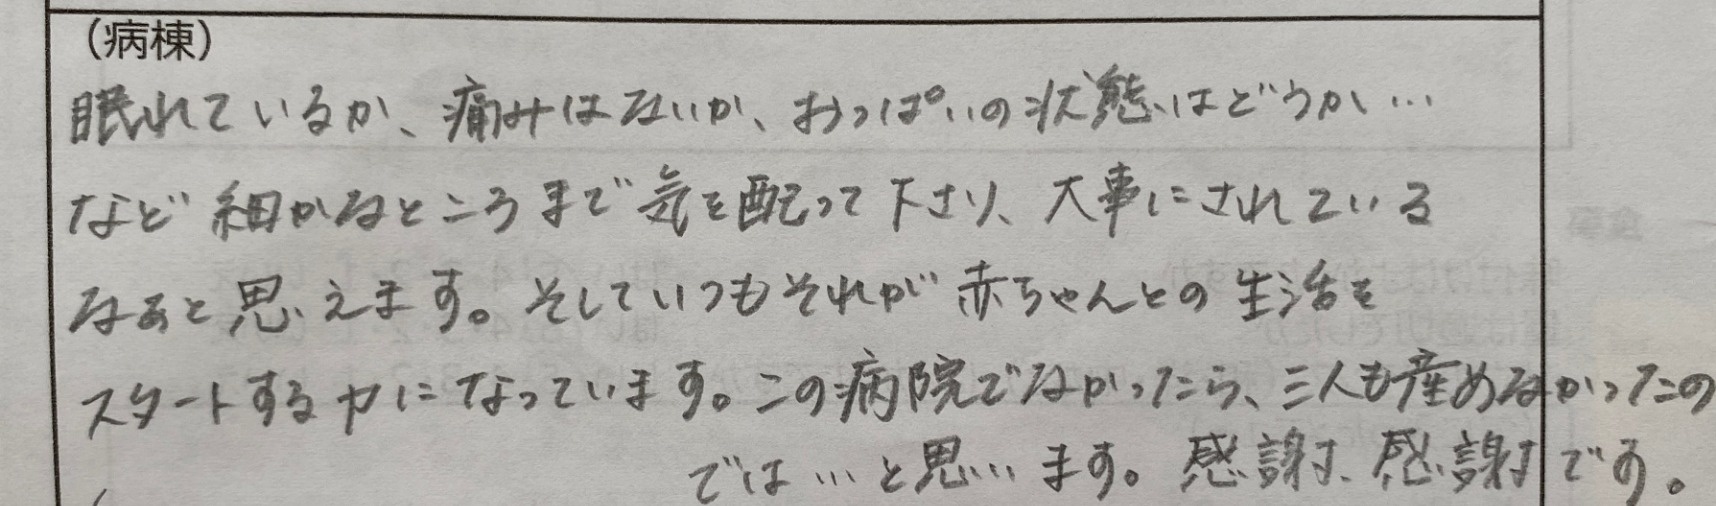 (病棟)
眠れているか、痛みはないか、おっぱいの状態はどうか…
など細かなところまで気を配って下さり、大事にされている
なぁと思えます。そしていつもそれが赤ちゃんとの生活を
スタートする力になっています。この病院でなかったら、三人も産めなかったの
では…と思います。感謝、感謝です。